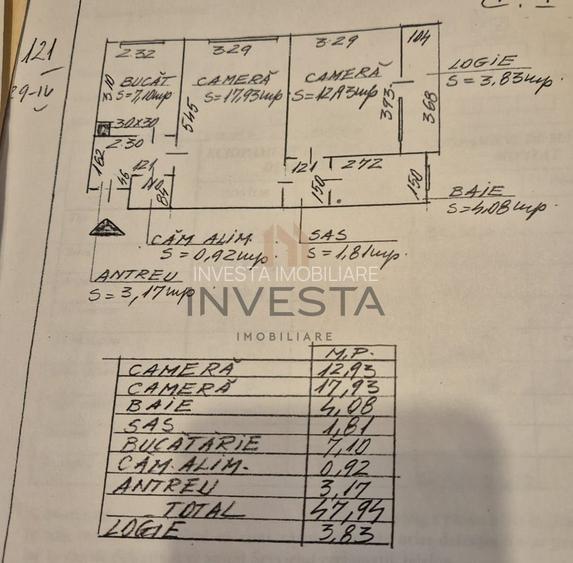 121
29-IV
2.32
3.29
3.29
104
BUCĂT
S=7,10mp
3,10
CAMERĂ
S=17,93mp
545
CAMERĂ
S=12,93mp
393
368
LOGIE
S=3,83mp.
30X30
2.30
162
121
84
121
150
272
150
BAIE
S=4,08mp.
CĂM ALIM.
S=0,92mp.
SAS
S=1,81mp.
ANTREU
S=3,17mp
INVESTA IMOBILIARE
INVESTA
IMOBILIARE
M.P.
CAMERĂ 12,93
CAMERĂ 17,93
BAIE 4,08
SAS 1,81
BUCĂTĂRIE 7,10
CĂM.ALIM. 0,92
ANTREU 3,17
TOTAL 47,94
LOGIE 3,83